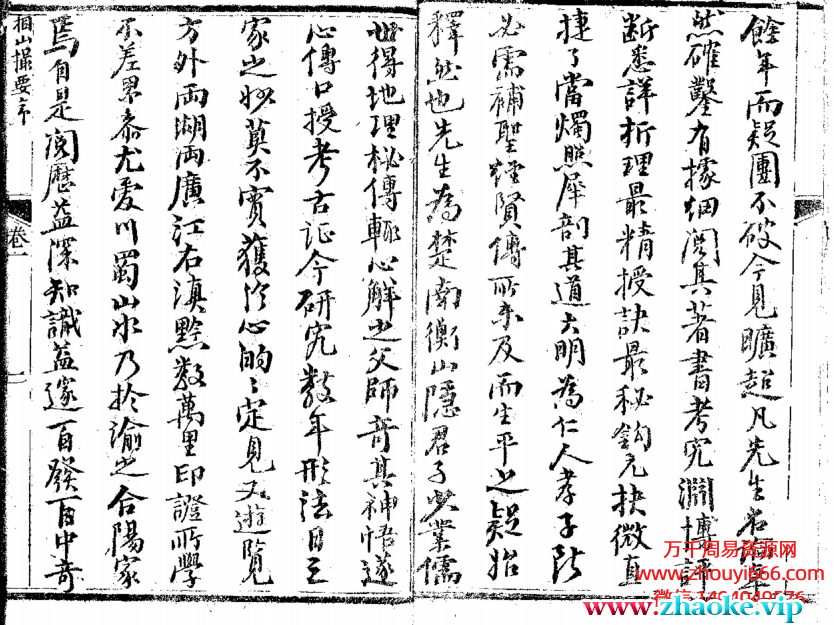 餘年而疑團不破今見曠超凡先生
然確鑿有據細閱其著書考究淵博評
斷悉詳析理最精授訣最秘鈎元抉微直
捷了當燭照犀剖其道大明為仁人孝子所
必需補聖經賢傳所未及而生平之疑始
釋然也先生為楚南衡山隱君子少業儒
世得地理秘傳輒心解之父師奇其神悟遂
心傳口授考古証今研究數年形法日三
家之妙莫不實獲於心的々定見又遊覽
方外両湖両廣江右滇黔數萬里印證所學
不差累黍尤愛川蜀山水乃於渝之合陽家
焉自是閱歷益深知識益邃百發百中奇
撮要序
卷一
万千周易资源网
www.zhouyi666.com
www.zhaoke.vip